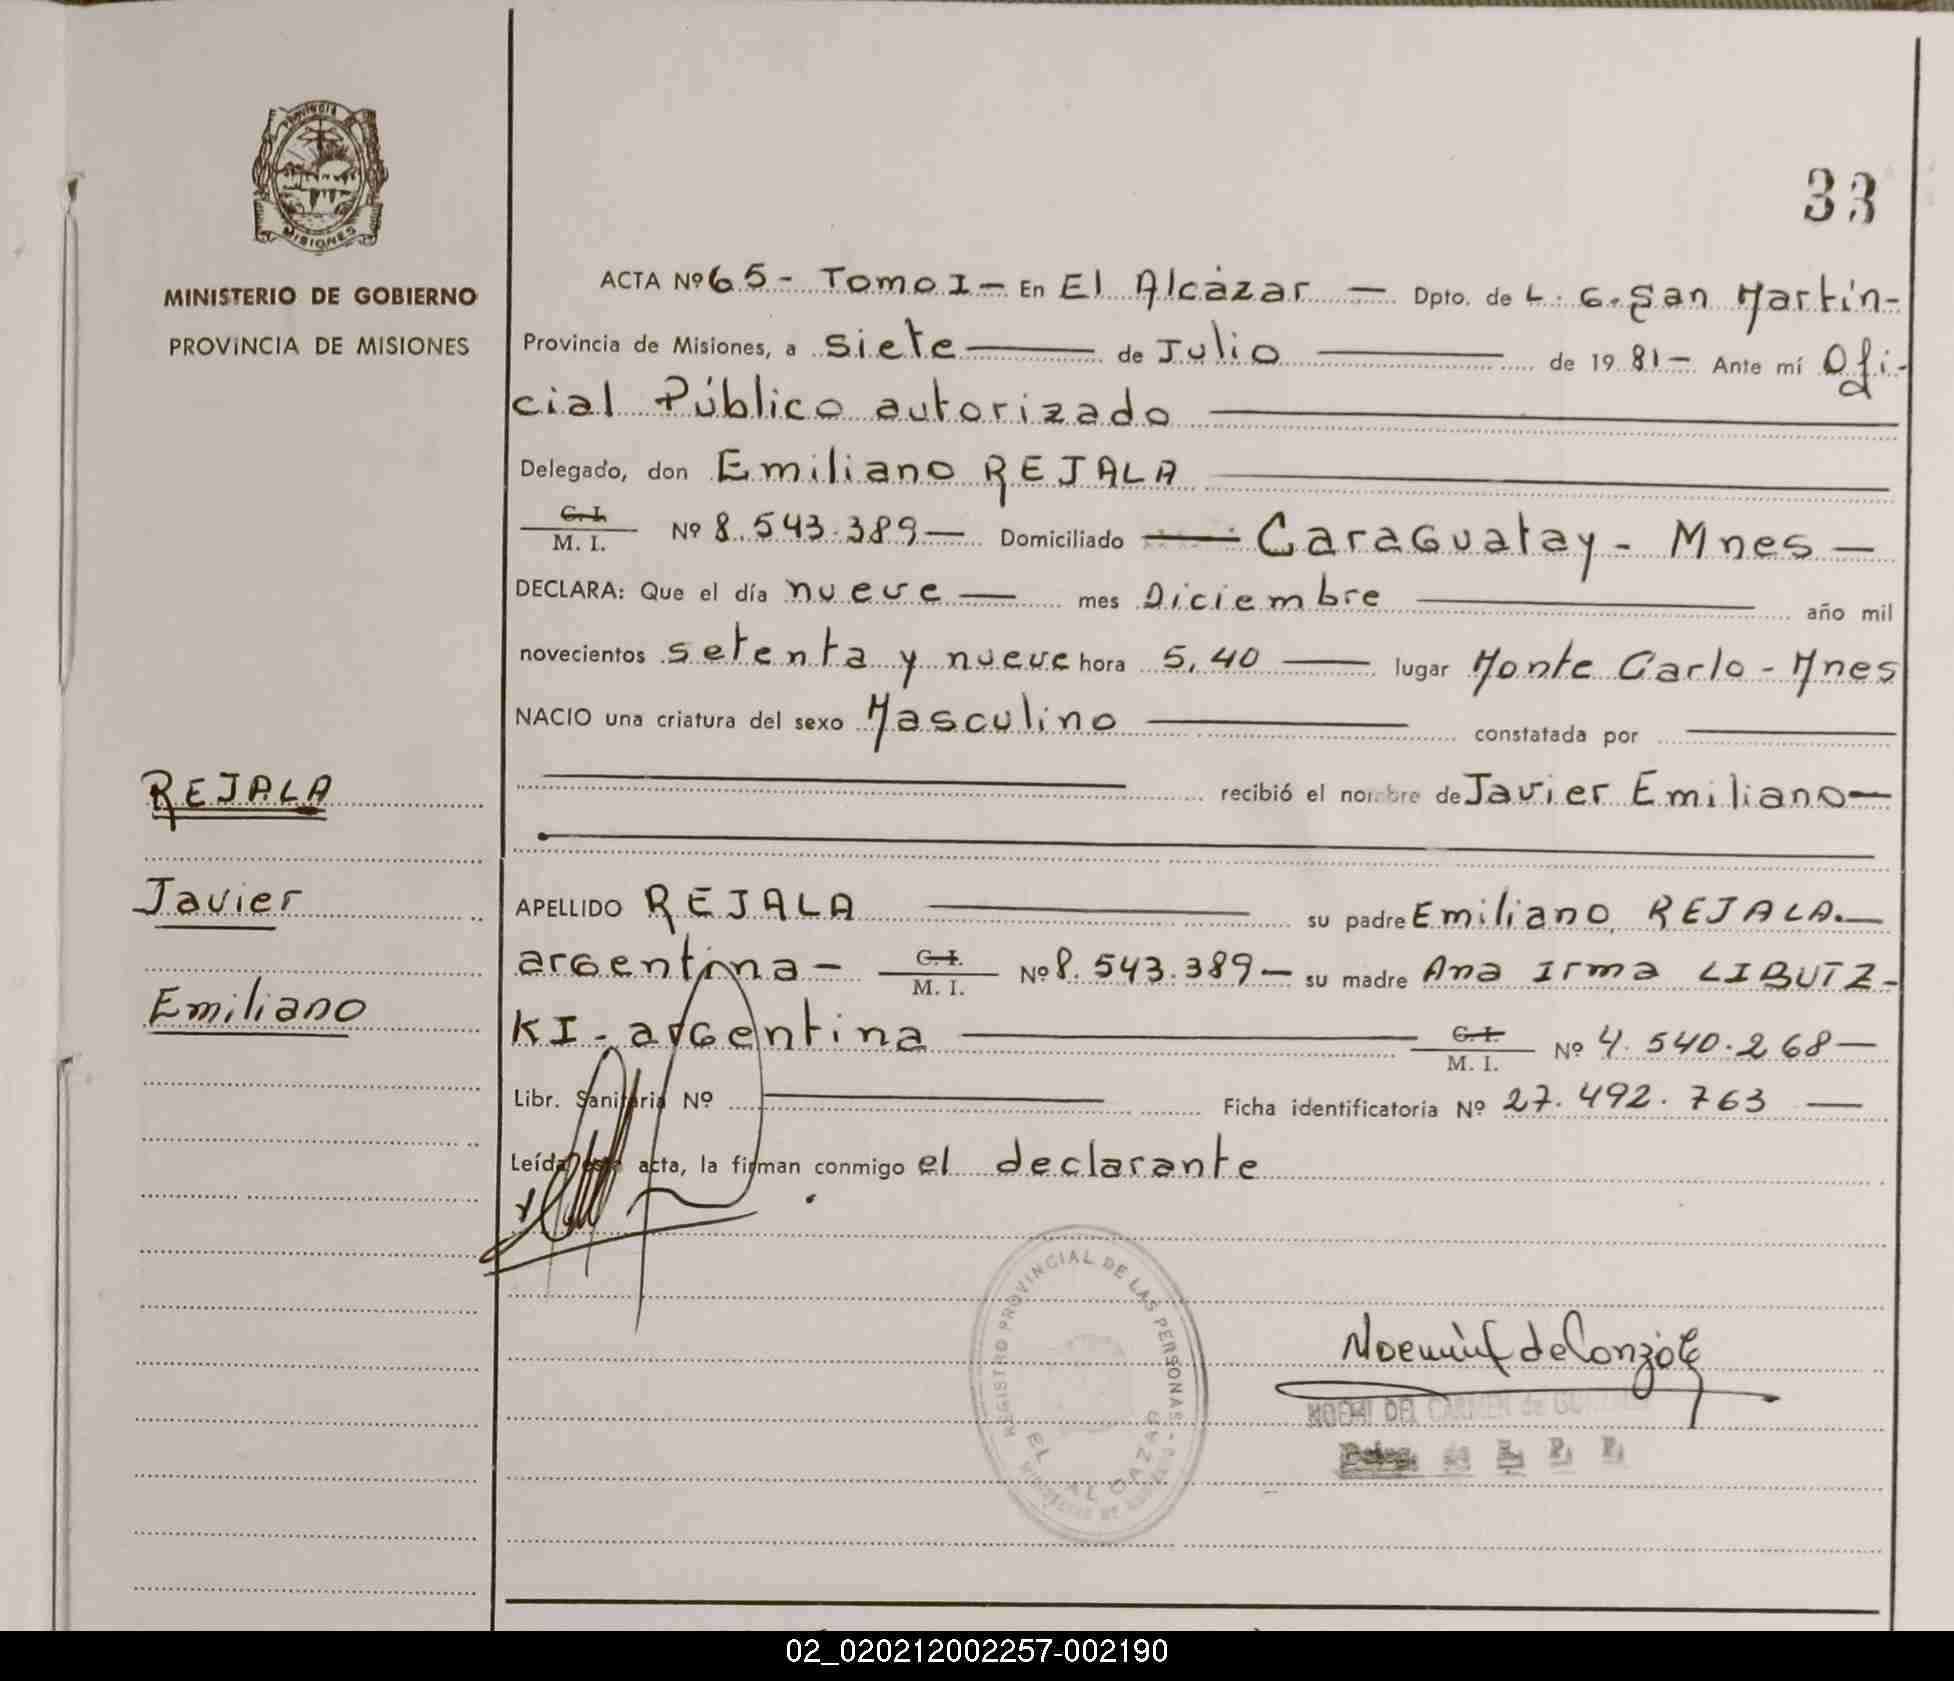 Provincia
MISIONES
MINISTERIO DE GOBIERNO
PROVINCIA DE MISIONES
REJALA
Javier
Emiliano
33
ACTA Nº 65 - Tomo I - En El Alcázar — Dpto. de L. G. San Martín -
Provincia de Misiones, a siete — de Julio — de 1981 - Ante mí Ofi-
cial Público autorizado —
Delegado, don Emiliano REJALA —
C. I.
M. I. Nº 8.543.389 — Domiciliado — Caraguatay - Mnes —
DECLARA: Que el día nueve — mes Diciembre — año mil
novecientos setenta y nueve hora 5,40 — lugar Monte Carlo - Mnes
NACIO una criatura del sexo Masculino — constatada por —
— recibió el nombre de Javier Emiliano —
APELLIDO REJALA — su padre Emiliano REJALA. —
argentina - C. I. M. I. Nº 8.543.389 — su madre Ana Irma LIBUTZ-
KI - argentina — C. I. M. I. Nº 4.540.268 —
Libr. Sanitaria Nº — Ficha identificatoria Nº 27.492.763 —
Leída este acta, la firman conmigo el declarante
REGISTRO PROVINCIAL DE LAS PERSONAS
EL ALCAZAR
NOEMI DEL CARMEN de
02_020212002257-002190